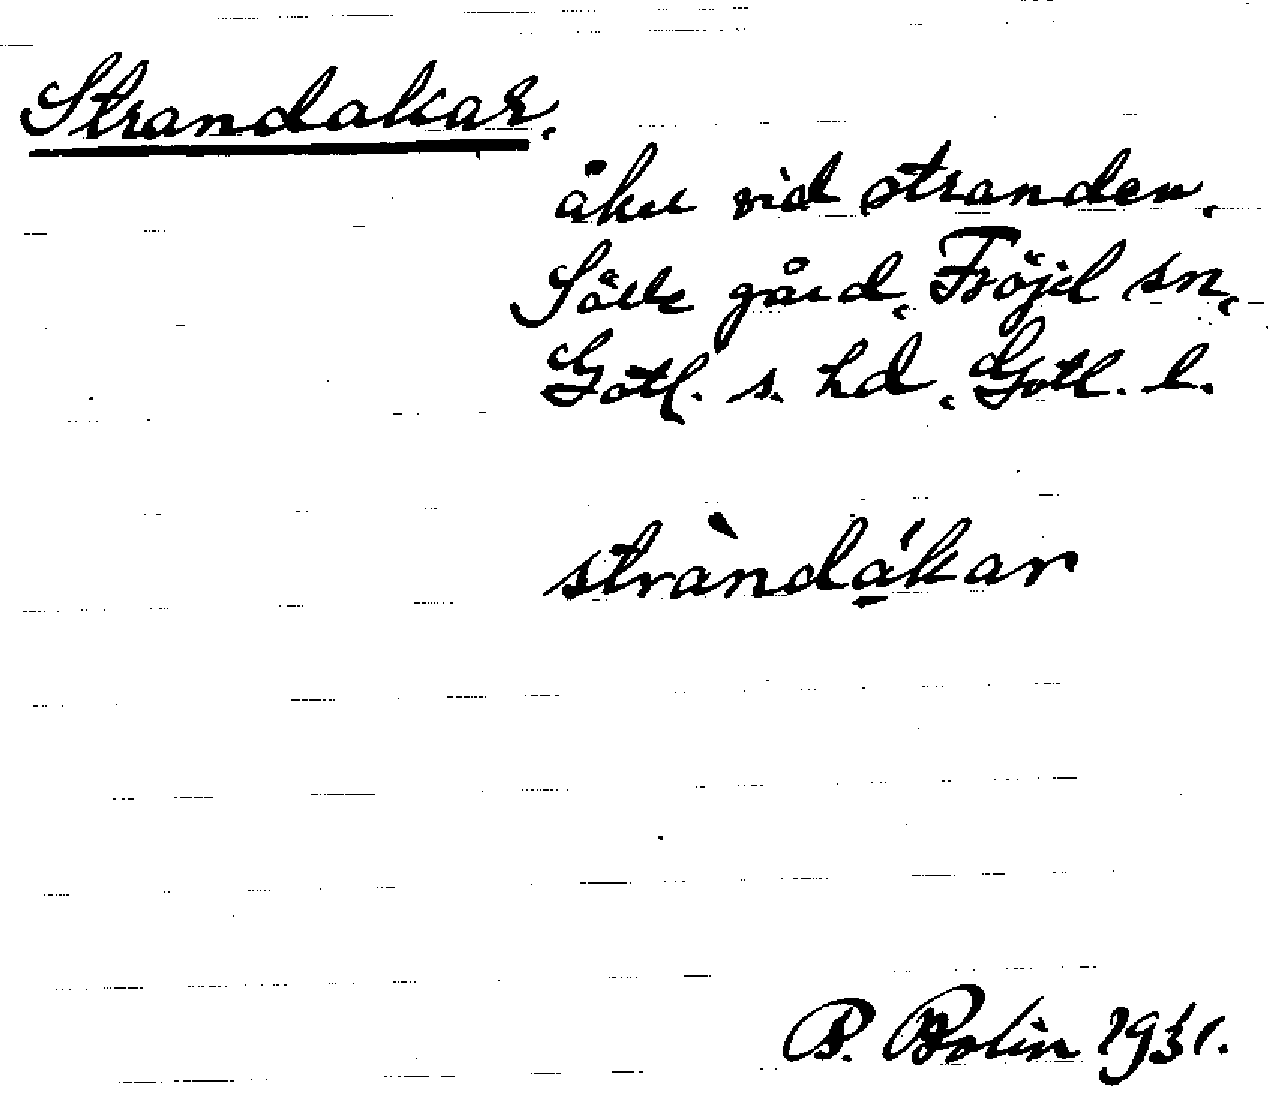 Strandakar.
åker vid stranden.
gård, Fröjel sn,
Gotl. s. hd, Gotl. l.
stràndákar
B. Bolin 1931.